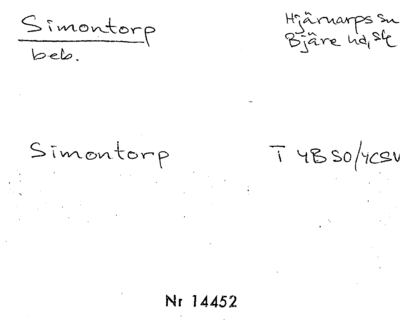 Simontorp
beb.
Hjärnarps sn
Bjäre hd, Sk
Simontorp
T 4B SO/4CSV
Nr 14452